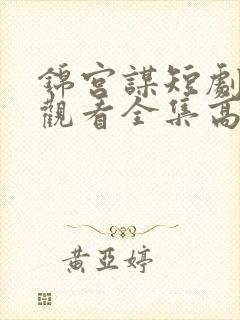 錦宮謀短劇
觀看全集高
黃亞婷